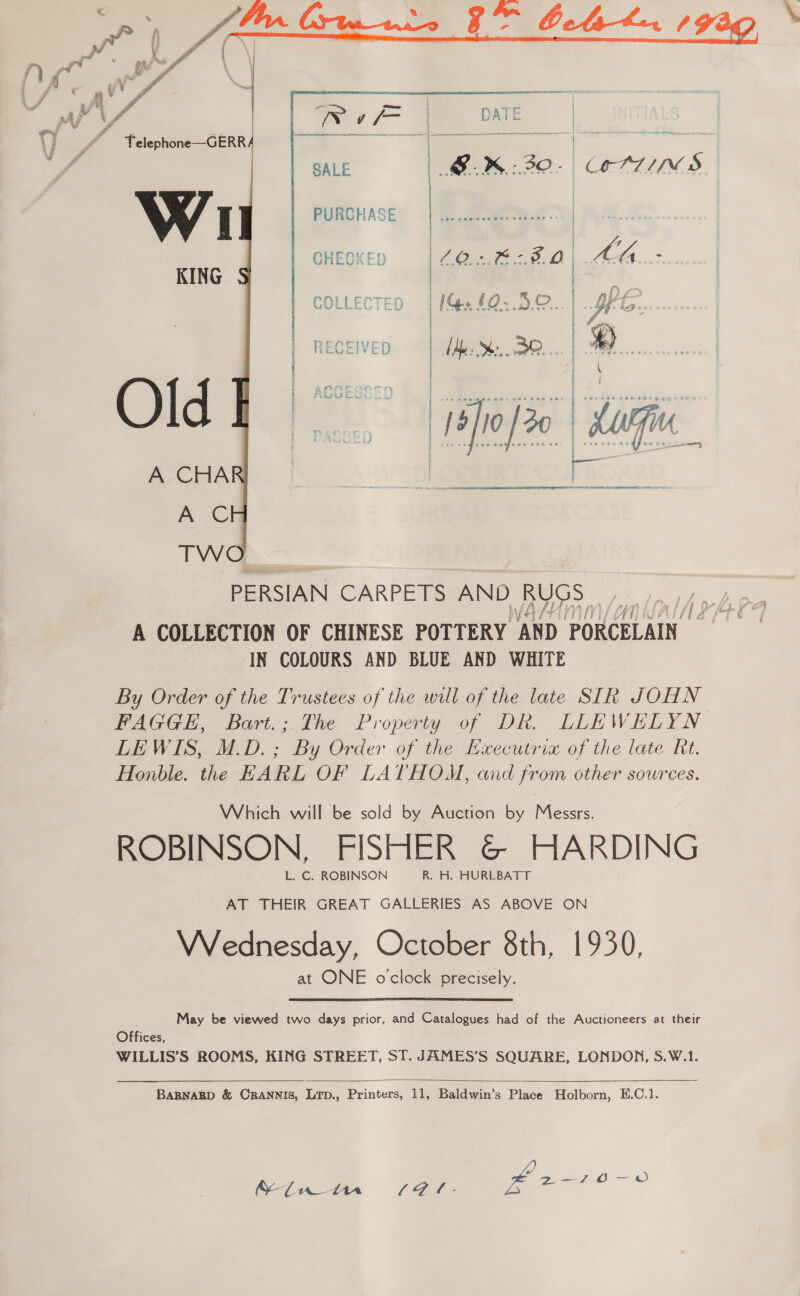 8th October 1930
Telephone—GERRA
R v F DATE INITIALS
SALE 8.X.30. COLLINS
PURCHASE
CHECKED 10.X.30
COLLECTED 16.10.30
RECEIVED 16.X.30
ACCESSED
PASSED 15/10/30
Wil
KING S
Old
A CHAR
A CH
TWO
PERSIAN CARPETS AND RUGS
A COLLECTION OF CHINESE POTTERY AND PORCELAIN
IN COLOURS AND BLUE AND WHITE
By Order of the Trustees of the will of the late SIR JOHN
FAGGE, Bart.; The Property of DR. LLEWELYN
LEWIS, M.D.; By Order of the Executrix of the late Rt.
Honble. the EARL OF LATHOM, and from other sources.
Which will be sold by Auction by Messrs.
ROBINSON, FISHER & HARDING
L. C. ROBINSON R. H. HURLBATT
AT THEIR GREAT GALLERIES AS ABOVE ON
Wednesday, October 8th, 1930,
at ONE o'clock precisely.
May be viewed two days prior, and Catalogues had of the Auctioneers at their
Offices,
WILLIS'S ROOMS, KING STREET, ST. JAMES'S SQUARE, LONDON, S.W.1.
BARNARD & CRANNIS, LTD., Printers, 11, Baldwin's Place Holborn, E.C.1.
£2-10-0